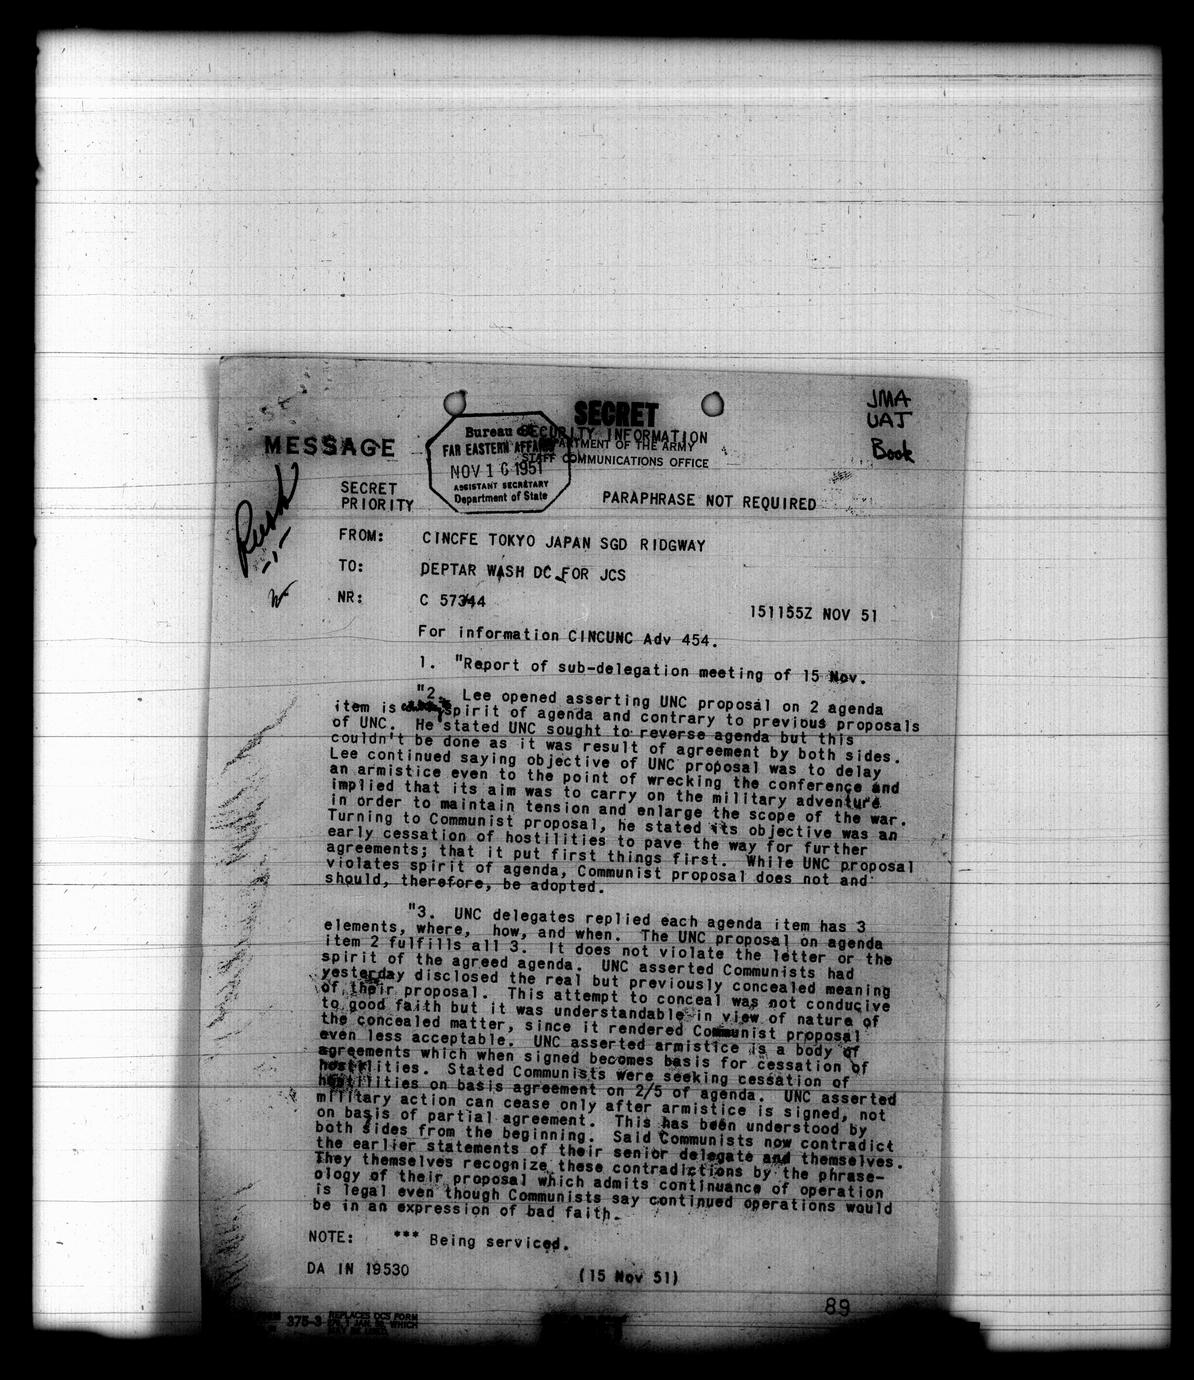 SECRET
JMA
UAJ
Book
MESSAGE
SECURITY INFORMATION
DEPARTMENT OF THE ARMY
STAFF COMMUNICATIONS OFFICE
Bureau of
FAR EASTERN AFFAIRS
NOV 16 1951
ASSISTANT SECRETARY
Department of State
SECRET
PRIORITY
PARAPHRASE NOT REQUIRED
Rusk
FROM: CINCFE TOKYO JAPAN SGD RIDGWAY
TO: DEPTAR WASH DC FOR JCS
NR: C 57344
151155Z NOV 51
For information CINCUNC Adv 454.
1. "Report of sub-delegation meeting of 15 Nov.
"2. Lee opened asserting UNC proposal on 2 agenda
item is spirit of agenda and contrary to previous proposals
of UNC. He stated UNC sought to reverse agenda but this
couldn't be done as it was result of agreement by both sides.
Lee continued saying objective of UNC proposal was to delay
an armistice even to the point of wrecking the conference and
implied that its aim was to carry on the military adventure
in order to maintain tension and enlarge the scope of the war.
Turning to Communist proposal, he stated its objective was an
early cessation of hostilities to pave the way for further
agreements; that it put first things first. While UNC proposal
violates spirit of agenda, Communist proposal does not and
should, therefore, be adopted.
"3. UNC delegates replied each agenda item has 3
elements, where, how, and when. The UNC proposal on agenda
item 2 fulfills all 3. It does not violate the letter or the
spirit of the agreed agenda. UNC asserted Communists had
yesterday disclosed the real but previously concealed meaning
of their proposal. This attempt to conceal was not conducive
to good faith but it was understandable in view of nature of
the concealed matter, since it rendered Communist proposal
even less acceptable. UNC asserted armistice is a body of
agreements which when signed becomes basis for cessation of
hostilities. Stated Communists were seeking cessation of
hostilities on basis agreement on 2/5 of agenda. UNC asserted
military action can cease only after armistice is signed, not
on basis of partial agreement. This has been understood by
both sides from the beginning. Said Communists now contradict
the earlier statements of their senior delegate and themselves.
They themselves recognize these contradictions by the phrase-
ology of their proposal which admits continuance of operation
is legal even though Communists say continued operations would
be in an expression of bad faith.
NOTE: *** Being serviced.
DA IN 19530
(15 Nov 51)
89
375-3 REPLACES DCS FORM
WHICH